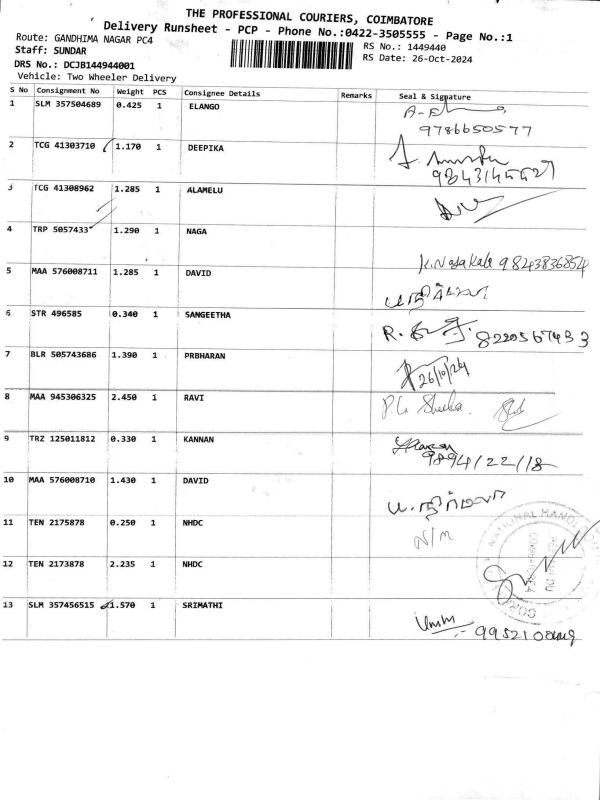 THE PROFESSIONAL COURIERS, COIMBATORE
Delivery Runsheet - PCP - Phone No.:0422-3505555 - Page No.:1
Route: GANDHIMA NAGAR PC4
RS No.: 1449440
Staff: SUNDAR
RS Date: 26-Oct-2024
DRS No.: DCJB144944001
Vehicle: Two Wheeler Delivery
S No Consignment No Weight PCS Consignee Details Remarks Seal & Signature
1 SLM 357504689 0.425 1 ELANGO
9786650577
2 TCG 41303710 1.170 1 DEEPIKA
3 TCG 41308962 1.285 1 ALAMELU
4 TRP 5057433 1.290 1 NAGA
K.Nagakala 9824383 6854
5 MAA 576008711 1.285 1 DAVID
6 STR 496585 0.340 1 SANGEETHA
R. 8220567493
7 BLR 505743686 1.390 1 PRBHARAN
26/10/24
8 MAA 945306325 2.450 1 RAVI
9 TRZ 125011812 0.330 1 KANNAN
9894122118
10 MAA 576008710 1.430 1 DAVID
11 TEN 2175878 0.250 1 NHDC
12 TEN 2173878 2.235 1 NHDC
13 SLM 357456515 1.570 1 SRIMATHI